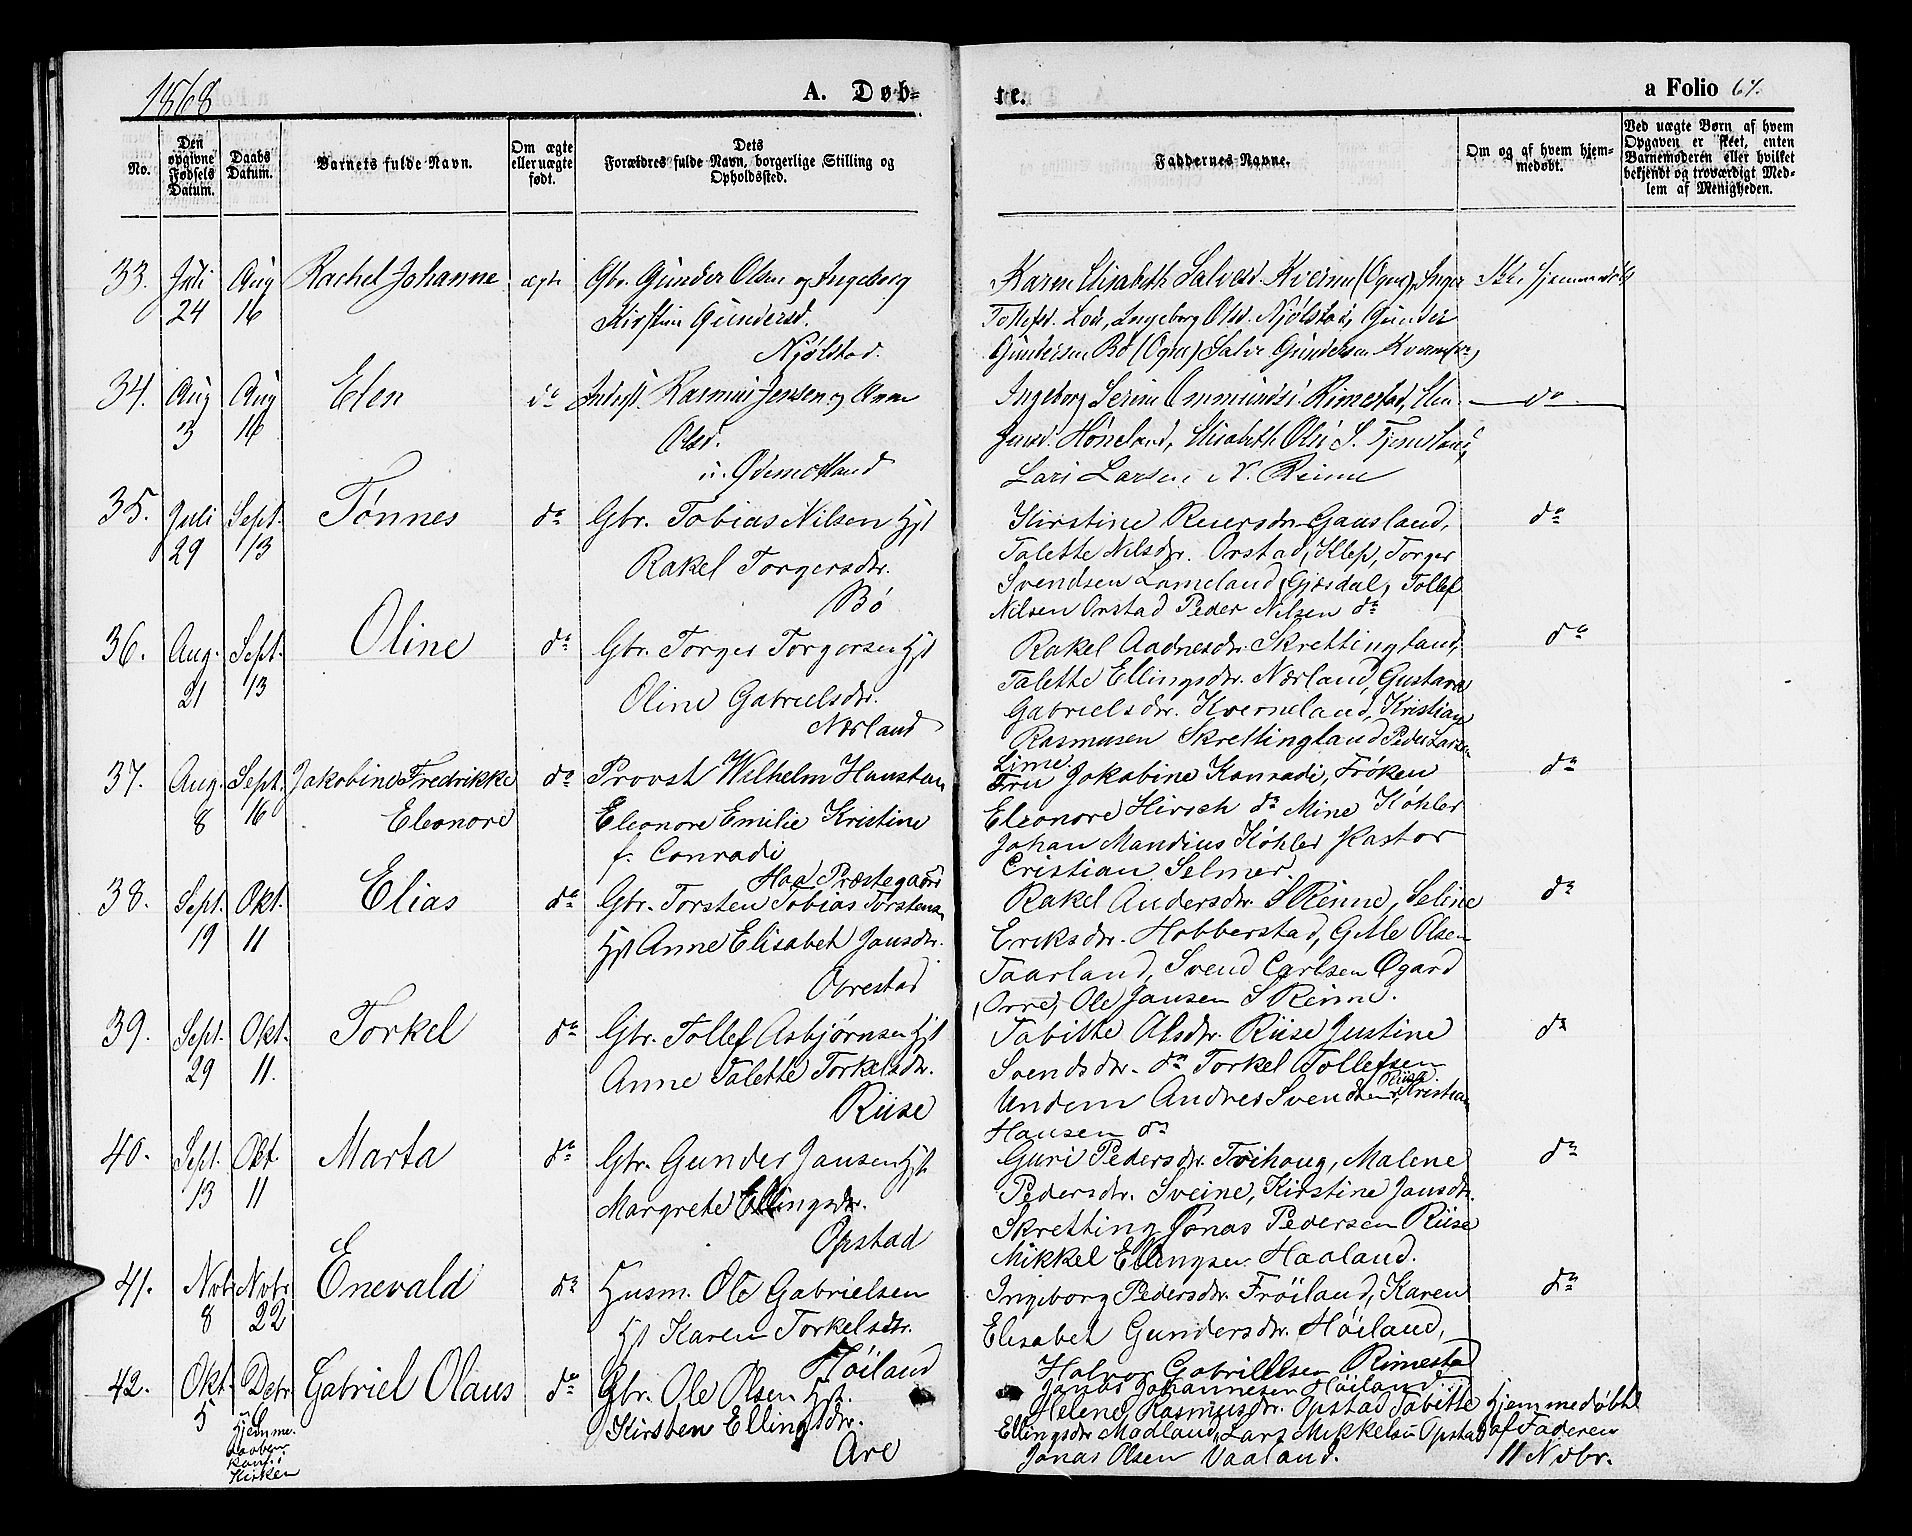 1868
A. Døb-
te.
a Folio 67.
No.
Den opgivne Fødsels Datum.
Daabs Datum.
Barnets fulde Navn.
Om ægte eller uægte født.
Dets Forældres fulde Navn, borgerlige Stilling og Opholdssted.
Faddernes Navne.
Om og af hvem hjem-
medøbt.
Ved uægte Børn af hvem
Opgaven er skeet, enten
Barnemoderen eller hvilket
bekjendt og troværdigt Med-
lem af Menigheden.
33. Juli 24 Aug 16 Rachel Johanne ægte
Gbr. Gunder Olsen og Ingeborg
Kirstine Gundersd.
Njølstad.
Karen Elisabeth Salvesd. Kverme (Ogna), Inger
Tollefsd. Lode, Ingeborg Olsd. Njølstad, Gunder
Gundersen Bø (Ogna) Salve Gundersen
Ikke hjemmedøbt
34. Aug 3 Aug 16 Elen do
Rasmus Jensen og Anna
Olsd.
Ødemotland
Ingeborg Serine Ommundsd. Rimestad, Elen
Jensd. Høneland, Elisabeth Olsd. S. Tjemsland,
Lars Larsen N. Reime
do
35. Juli 29 Sept. 13 Tønnes do
Gbr. Tobias Nilsen Hst
Rakel Torgersdtr.
Bø
Kirstine Reiersdtr. Gausland,
Talette Nilsdtr. Orstad, Klep, Torger
Svendsen Lomeland, Gjesdal, Tollef
Nilsen Orstad Peder Nilsen do
do
36. Aug. 21 Sept. 13 Oline do
Gbr. Torger Torgersen Hst
Oline Gabrielsdtr.
Nærland
Rakel Aadnesdtr. Skrettingland,
Talette Ellingsdtr. Nærland, Gustava
Gabrielsdtr. Kverneland, Kristian
Rasmusen Skrettingland Peder Larsen
Lime.
do
37. Aug. 8 Sept. 16 Jakobine Fredrikke
Eleonore do
Provst Wilhelm Hansteen
Eleonore Emilie Kristine
f. Conradi
Haa Præstegaard
Fru Jakobine Konradi, Frøken
Eleonore Hirsch do Mine Køhler
Johan Mandius Køhler Pastor
Cristian Selmer.
do
38. Sept. 19 Okt. 11 Elias do
Gbr. Torsten Tobias Torstensen
Hst Anne Elisabet Jansdtr.
Obrestad
Rakel Andersdtr. S Reime, Seline
Eriksdtr. Hobberstad, Gitle Olsen
Taarland, Svend Carlsen Ogard
(Orre), Ole Jansen S Reime.
do
39. Sept. 29 Okt. 11. Torkel do
Gbr. Tollef Asbjørnsen Hst
Anne Talette Torkelsdtr.
Riise
Tabitte Alsdtr. Riise Justine
Svendsdtr. do Torkel Tollefsen
Undem Andres Svendsen Riise, Kristian
Hansen do
do
40. Sept. 13 Okt. 11 Marta do
Gbr. Gunder Jansen Hst
Margrete Ellingsdtr.
Opstad
Guri Pedersdtr. Tvihoug, Malene
Pedersdtr. Sveine, Kirstine Jansdtr.
Skretting Jonas Pedersen Riise
Mikkel Ellingsen Haaland.
do
41. Nvbr 8 Nvbr 22 Enevald do
Husm. Ole Gabrielsen
Hst Karen Torkelsdtr.
Høiland
Ingeborg Pedersdtr. Frøiland, Karen
Elisabet Gundersdtr. Høiland,
Halvor Gabrielsen Rimestad
Jonas Johannesen Høiland
do
42. Okt. 5 Debr. Gabriel Olaus do
Hjemme-
daaben
kom i
Kirken
Gbr. Ole Olsen Hst.
Kirsten Ellingsdtr.
Are
Helene Rasmusdtr. Opstad Tabitte
Ellingsdtr Madland, Lars Mikkelsen Opstad
Jonas Olsen Vaaland.
Hjemmedøbt
af Faderen
11 Nvbr.